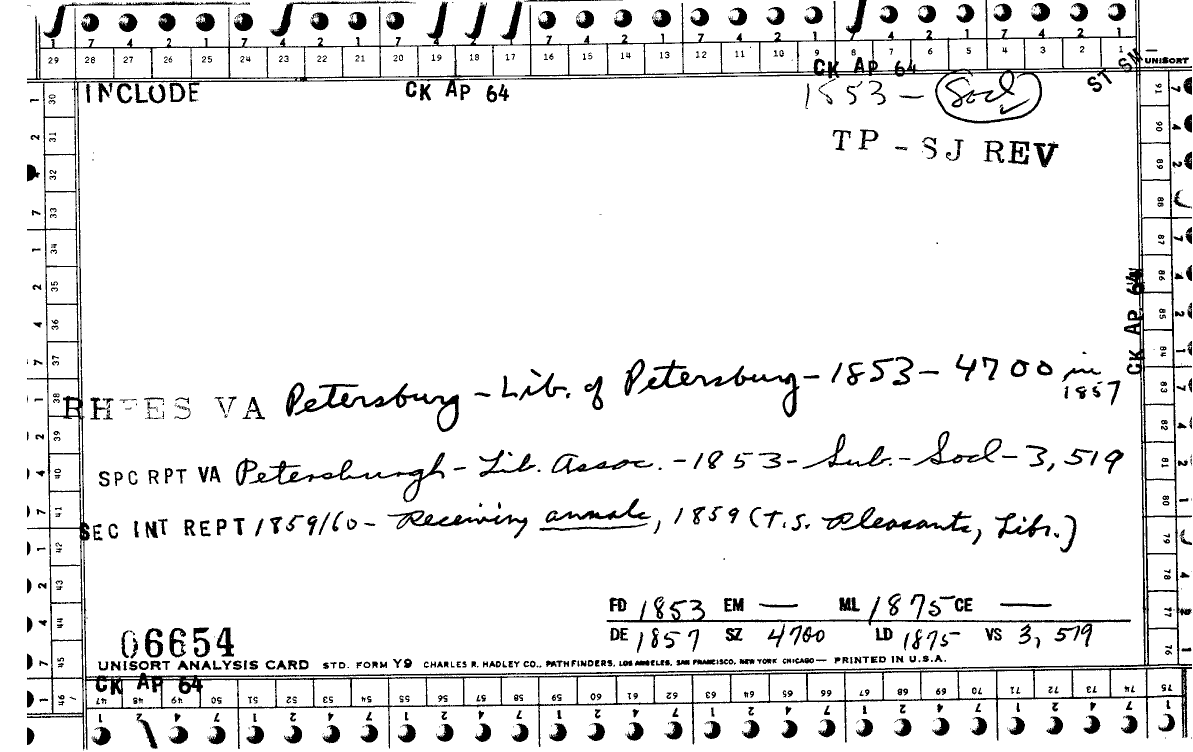 7 4 2 1 7 4 2 1 7 4 2 1 7 4 2 1 7 4 2 1
29 28 27 26 25 24 23 22 21 20 19 18 17 16 15 14 13 12 11 10 9 8 7 6 5 4 3 2 1
UNISORT
CK AP 64
ST SN
INCLUDE
CK AP 64
1853 - Socl
TP - SJ REV
CK AP 64
RHEES VA Petersburg - Lib. of Petersburg - 1853 - 4700 in 1857
SPC RPT VA Petersburgh - Lib. Assoc. - 1853 - Sub. - Socl - 3,519
SEC INT REPT 1859/60 - Receiving annals, 1859 (T.S. Pleasants, Libr.)
FD 1853 EM — ML 1875 CE —
DE 1857 SZ 4700 LD 1875 VS 3,519
06654
UNISORT ANALYSIS CARD STD. FORM Y9 CHARLES R. HADLEY CO., PATHFINDERS, LOS ANGELES, SAN FRANCISCO, NEW YORK CHICAGO — PRINTED IN U.S.A.
CK AP 64
30 31 32 33 34 35 36 37 38 39 40 41 42 43 44 45 46
47 48 49 50 51 52 53 54 55 56 57 58 59 60 61 62 63 64 65 66 67 68 69 70 71 72 73 74 75
76 77 78 79 80 81 82 83 84 85 86 87 88 89 90 91